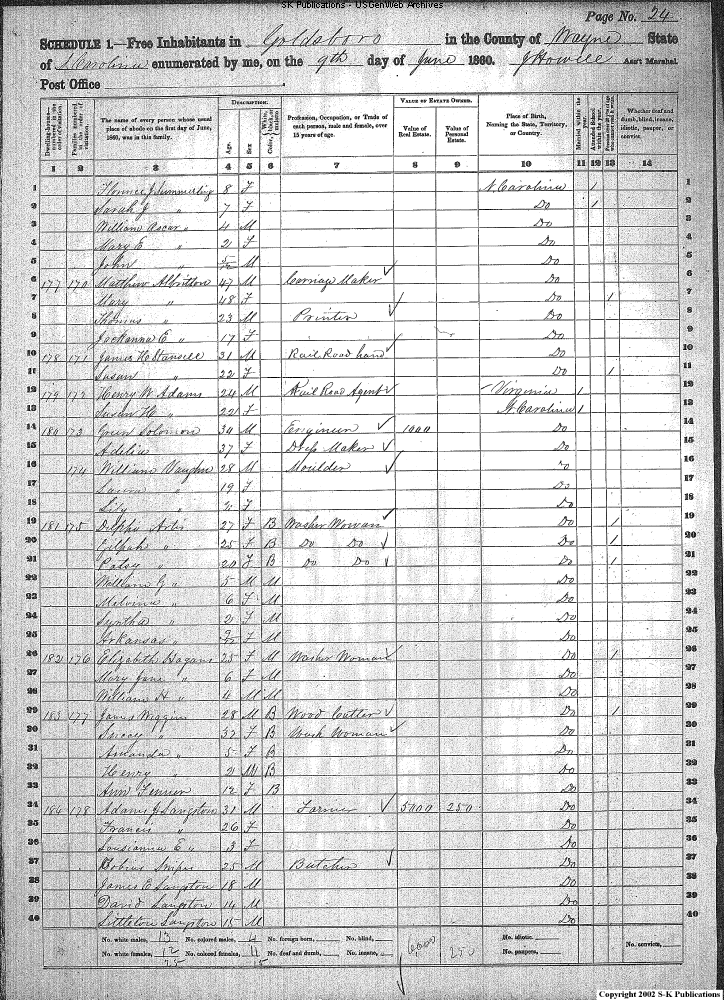 SK Publications - USGenWeb Archives
Page No. 24
SCHEDULE 1.—Free Inhabitants in Goldsboro in the County of Wayne State
of N. Carolina enumerated by me, on the 9th day of June 1860. J Howell Ass't Marshal
Post Office
Dwelling-houses—numbered in the order of visitation.
Families numbered in the order of visitation.
The name of every person whose usual place of abode on the first day of June, 1860, was in this family.
DESCRIPTION.
Age.
Sex
Color, White, black, or mulatto.
Profession, Occupation, or Trade of each person, male and female, over 15 years of age.
VALUE OF ESTATE OWNED.
Value of Real Estate.
Value of Personal Estate.
Place of Birth, Naming the State, Territory, or Country.
Married within the year.
Attended School within the year.
Whether deaf and dumb, blind, insane, idiotic, pauper, or convict.
1 2 3 4 5 6 7 8 9 10 11 12 13 14
1 Summerling 8 F N. Carolina 1 1
2 Sarah J " 7 F Do 1 2
3 William Oscar " 4 M Do 3
4 Mary E " 2 F Do 4
5 John " 5/12 M Do 5
6 177 170 Matthew Albritton 47 M Carriage Maker Do 6
7 Mary " 48 F Do 1 7
8 Thomas " 23 M Printer Do 8
9 E " 17 F Do 9
10 178 171 James H Stansell 31 M Rail Road hand Do 10
11 Susan " 22 F Do 1 11
12 179 172 Henry W Adams 24 M Rail Road Agent Virginia 1 12
13 Susan H " 22 F N. Carolina 1 13
14 180 173 Green Solomon 34 M Engineer 1000 Do 14
15 Adelia " 37 F Dress Maker Do 15
16 174 William Vaughn 28 M Moulder Do 16
17 Laura " 19 F Do 17
18 Lily " 2 F Do 18
19 181 175 Delphi Artis 27 F B Washer Woman Do 1 19
20 Zilpah " 25 F B Do Do Do 1 20
21 Patsy " 20 F B Do Do Do 1 21
22 William G " 5 M M Do 22
23 Melvina " 6 F M Do 23
24 Syntha " 2 F M Do 24
25 Arkansas " F M Do 25
26 182 176 Elizabeth Hagans 25 F M Washer Woman Do 1 26
27 Mary Jane " 6 F M Do 27
28 William H " 4 M M Do 28
29 183 177 James Wiggins 28 M B Wood Cutter Do 1 29
30 " 32 F B Wash Woman Do 30
31 Amanda " 5 F B Do 31
32 Henry " 2 M B Do 32
33 Ann 12 F B Do 33
34 184 178 Adams J Langston 31 M Farmer 5000 250 Do 34
35 Francis " 26 F Do 35
36 Louisianna E " 3 F Do 36
37 Snipes 25 M Butcher Do 37
38 James E Langston 18 M Do 38
39 David Langston 14 M Do 39
40 Littleton Langston 15 M Do 40
No. white males, 13 No. colored males, 4 No. foreign born, No. blind, 6,000 250 No. idiotic, No. convicts,
No. white females, 12 No. colored females, 11 No. deaf and dumb, No. insane, No. paupers,
25 15
Copyright 2002 S-K Publications